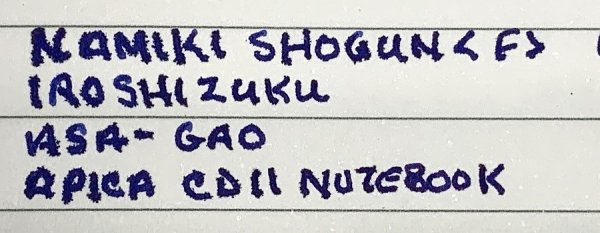 NAMIKI SHOGUN <F>
IROSHIZUKU
ASA-GAO
APICA CD11 NOTEBOOK